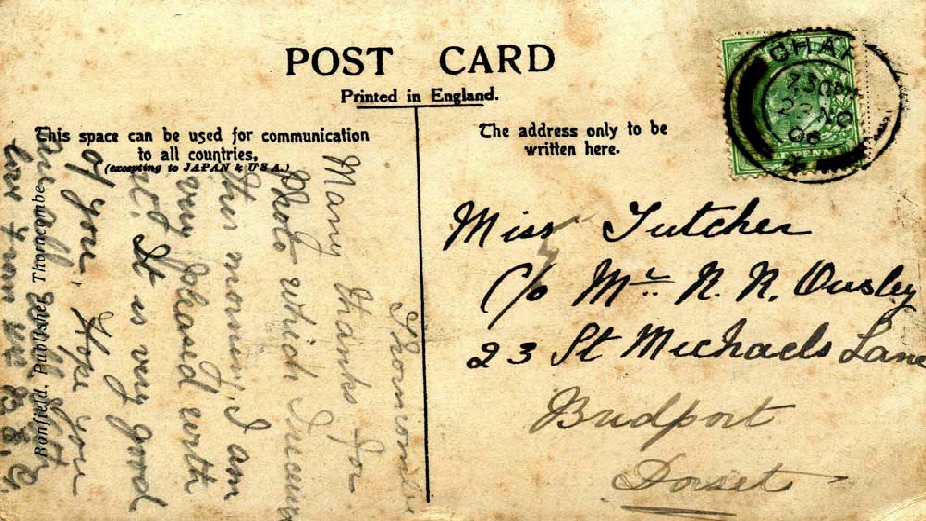 POST CARD
Printed in England.
This space can be used for communication
to all countries,
(excepting to JAPAN & U.S.A.)
The address only to be
written here.
CHAR
7.30 PM
06
Miss Tutcher
c/o Mr. N. N. Ousley
23 St Michaels Lane
Bridport
Dorset
Thorncombe
Many thanks for
Photo which I
this morning, I am
very pleased with
it. It is very good
of you, Hope you
are
Bonfield, Publisher, Thorncombe